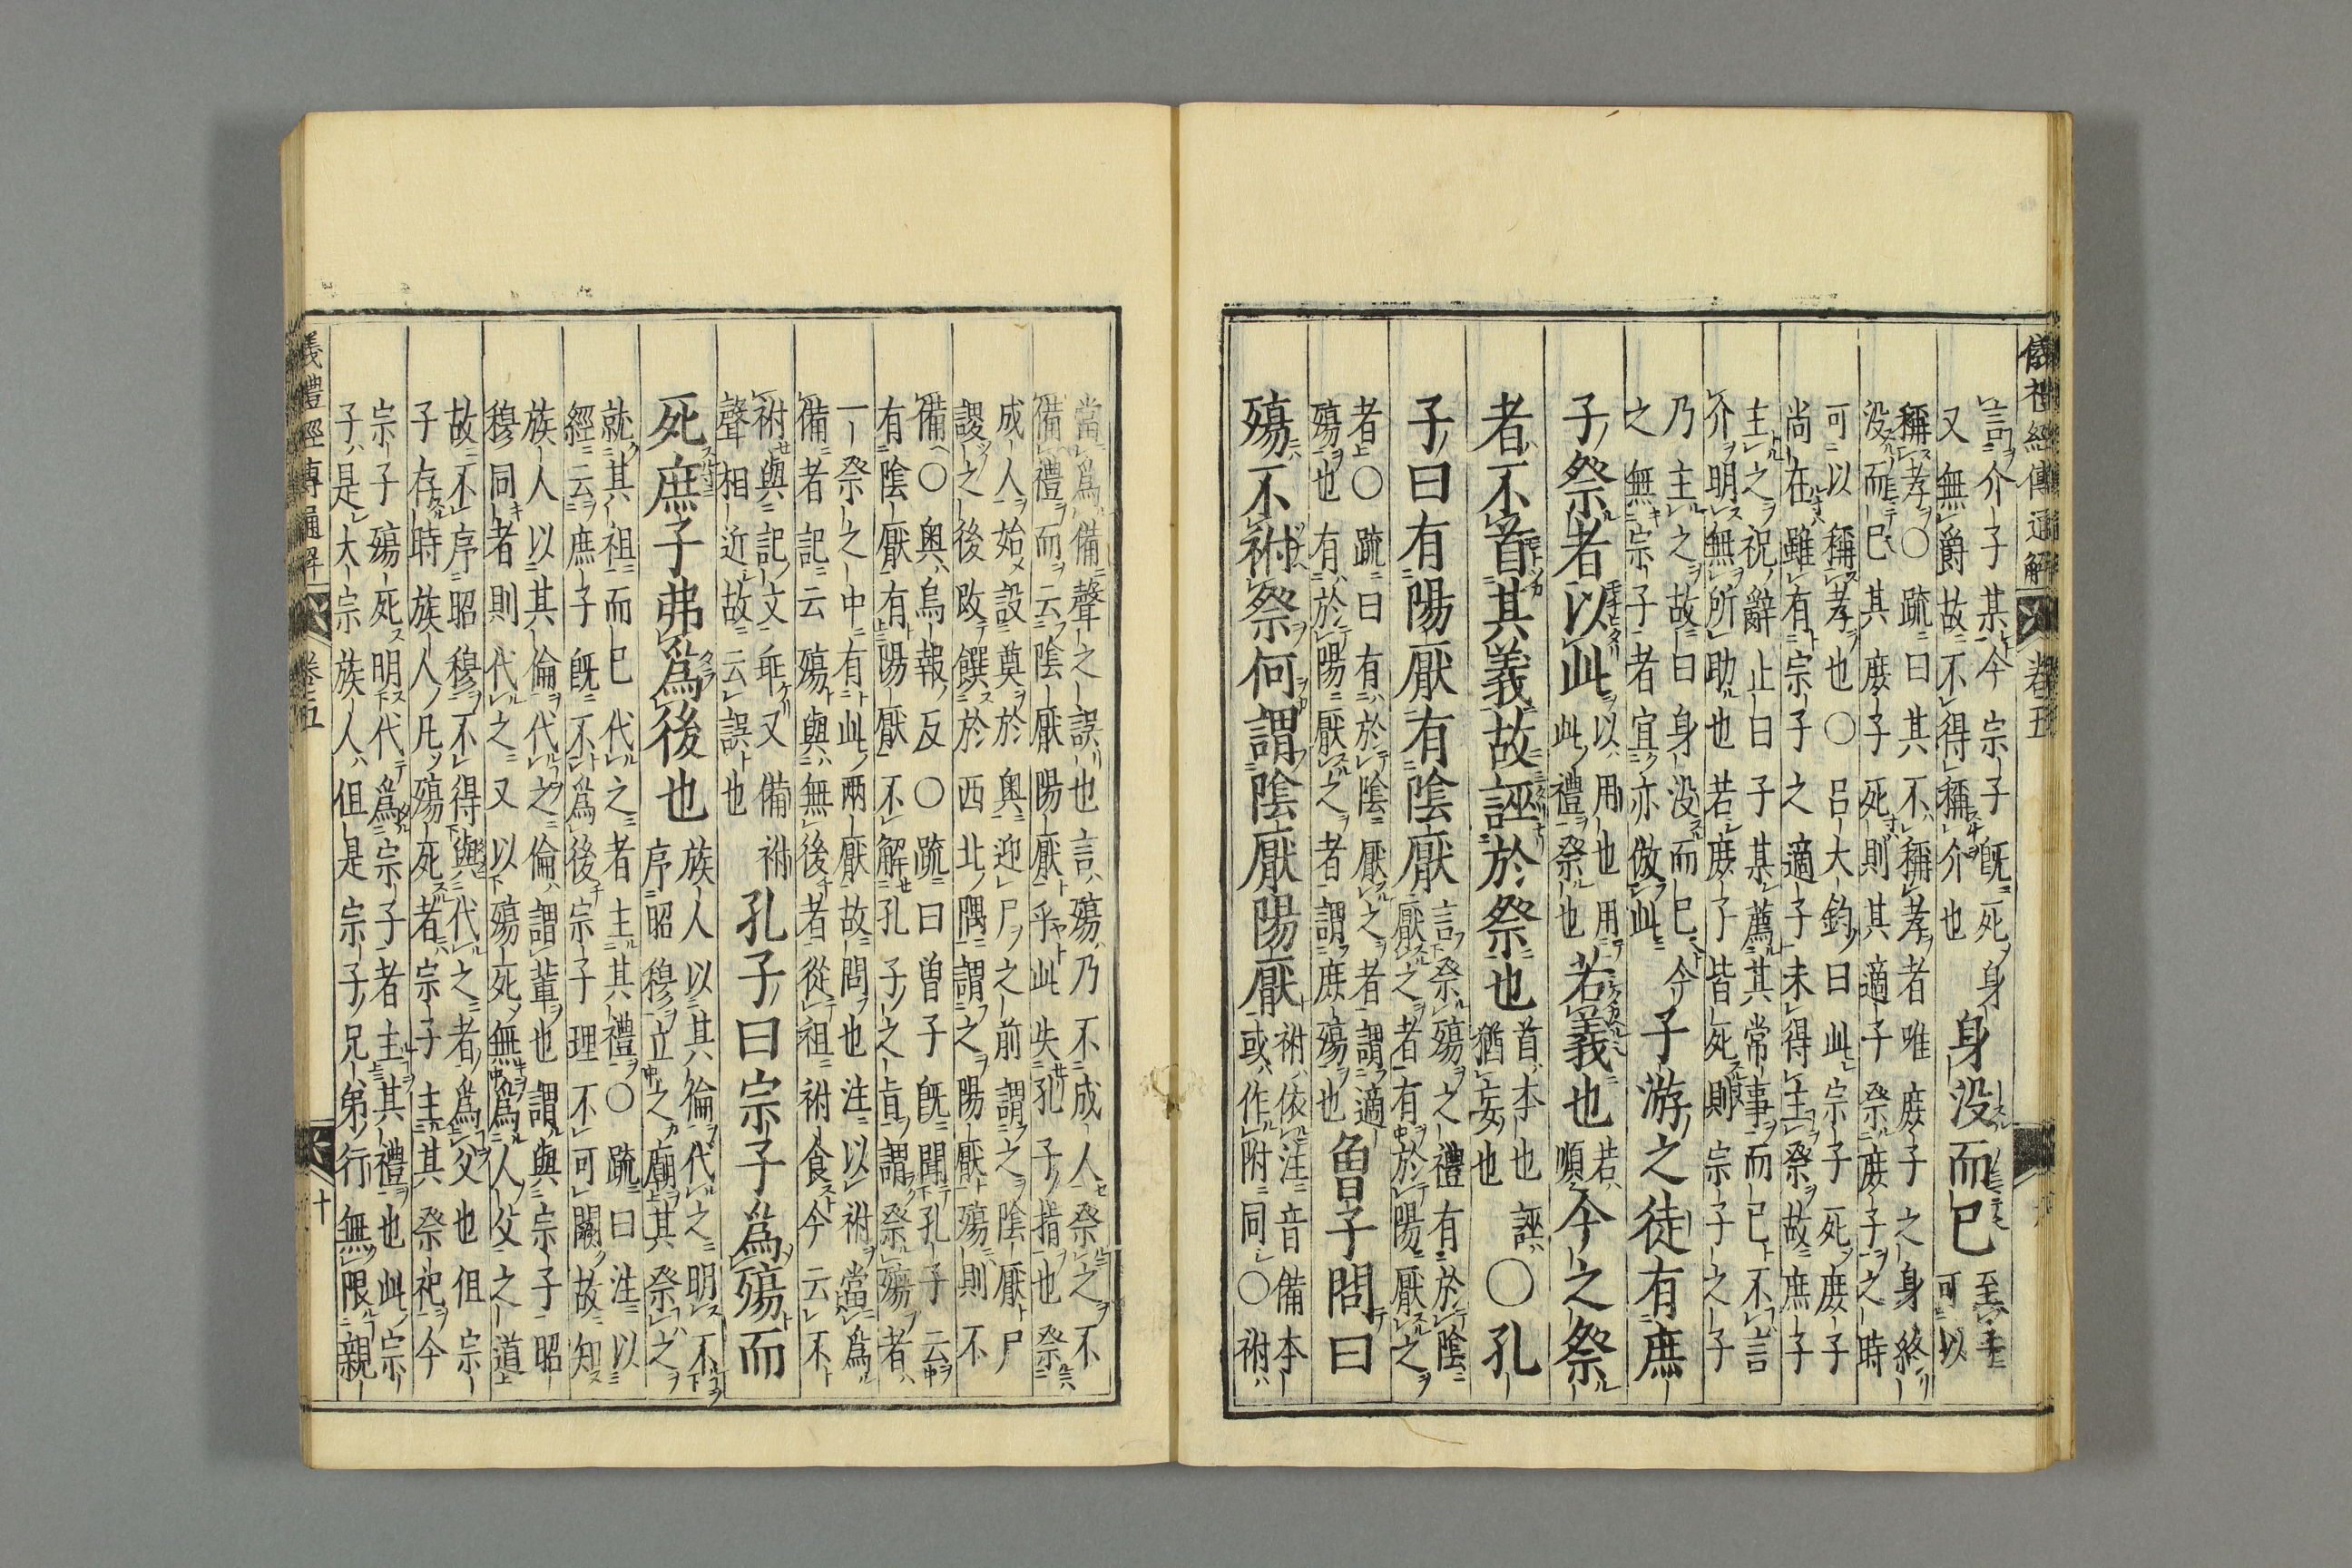 儀禮經傳通解 卷五 九
言介子某今宗子既死身
又無爵故不得稱介也
身没而已
至子
可以
稱孝○疏曰其不稱孝者唯庶子之身終
没而已其庶子死則其適子祭庶子之時
可以稱孝也○呂大鈞曰此宗子死庶子
尚在雖有宗子之適子未得主祭故庶子
主之祝辭止曰子某薦其常事而已不言
介明無所助也若庶子皆死則宗子之子
乃主之故曰身没而已今
之無宗子者宜亦倣此
子游之徒有庶
子祭者以此
以用也用
此禮祭也
若義也
若
順
今之祭
者不首其義故誣於祭也
首本也誣
猶妄也
○孔
子曰有陽厭有陰厭
言祭殤之禮有於陰
厭之者有於陽厭之
者○疏曰有於陰厭之者謂適
殤也有於陽厭之者謂庶殤也
曾子問曰
殤不祔祭何謂陰厭陽厭
祔依注音備本
或作附同○祔
當爲備聲之誤也言殤乃不成人祭之不
備禮而云陰厭陽厭乎此失孔子指也祭
成人始設奠於奧迎尸之前謂之陰厭尸
謖之後改饌於西北隅謂之陽厭殤則不
備○奧烏報反○疏曰曾子既聞孔子云
有陰厭有陽厭不解孔子之旨謂祭殤者
一祭之中有此兩厭故問也注以祔當爲
備者記云殤與無後者從祖祔食今云不
祔與記文乖又備祔
聲相近故云誤也
孔子曰宗子爲殤而
死庶子弗爲後也
族人以其倫代之明不
序昭穆立之廟其祭之
就其祖而已代之者主其禮○疏曰注以
經云庶子既不爲後宗子理不可闕故知
族人以其倫代之倫謂輩也謂與宗子昭
穆同者則代之又以殤死無爲人父之道
故不序昭穆不得與代之者爲父也但宗
子存時族人凡殤死者宗子主其祭祀今
宗子殤死明代爲宗子者主其禮也此宗
子是大宗族人但是宗子兄弟行無限親
儀禮經傳通解 卷五 十